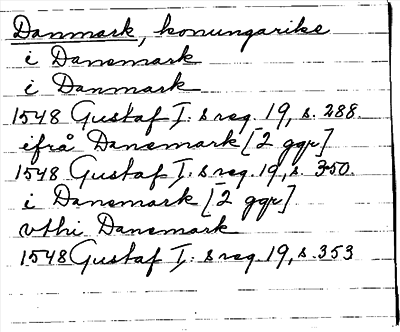 Danmark, konungarike
i Danemark
i Danmark
1548 Gustaf I:s reg. 19, s. 288.
ifrå Danemark [2 ggr]
1548 Gustaf I:s reg. 19, s. 350.
i Danemark [2 ggr]
vthi Danemark
1548 Gustaf I:s reg. 19, s. 353